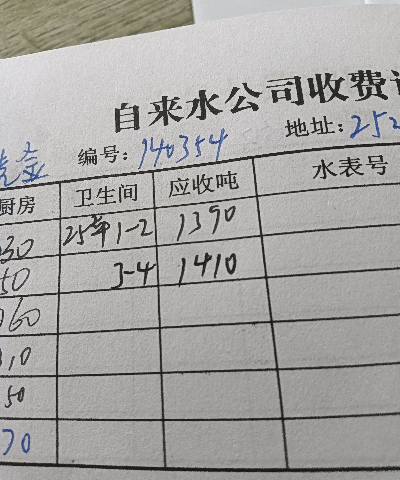 自来水公司收费
编号：140354 地址：252
厨房 卫生间 应收吨 水表号
30 25年1-2 1390
50 3-4 1410
60
10
50
70